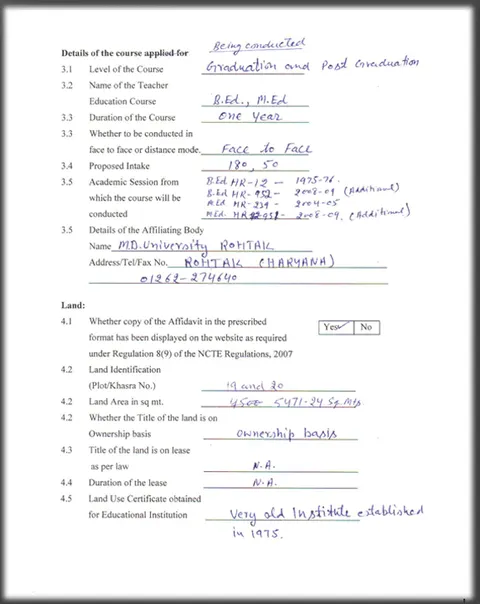 Being conducted
Details of the course applied for
3.1 Level of the Course Graduation and Post Graduation
3.2 Name of the Teacher
Education Course B.Ed., M.Ed
3.3 Duration of the Course One Year
3.3 Whether to be conducted in
face to face or distance mode. Face to Face
3.4 Proposed Intake 180, 50
3.5 Academic Session from B.Ed HR-12 - 1975-76.
which the course will be B.Ed HR-952 - 2008-09 (Additional)
conducted M.Ed. HR-239 - 2004-05
M.Ed. HR-952- - 2008-09. (Additional)
3.5 Details of the Affiliating Body
Name M.D.University ROHTAK
Address/Tel/Fax No. ROHTAK (HARYANA)
01262-274640
Land:
4.1 Whether copy of the Affidavit in the prescribed Yes No
format has been displayed on the website as required
under Regulation 8(9) of the NCTE Regulations, 2007
4.2 Land Identification
(Plot/Khasra No.) 19 and 20
4.2 Land Area in sq mt. 4500 5471-24 Sq Mts
4.2 Whether the Title of the land is on
Ownership basis Ownership basis
4.3 Title of the land is on lease
as per law N.A.
4.4 Duration of the lease N.A.
4.5 Land Use Certificate obtained
for Educational Institution Very old Institute established
in 1975.